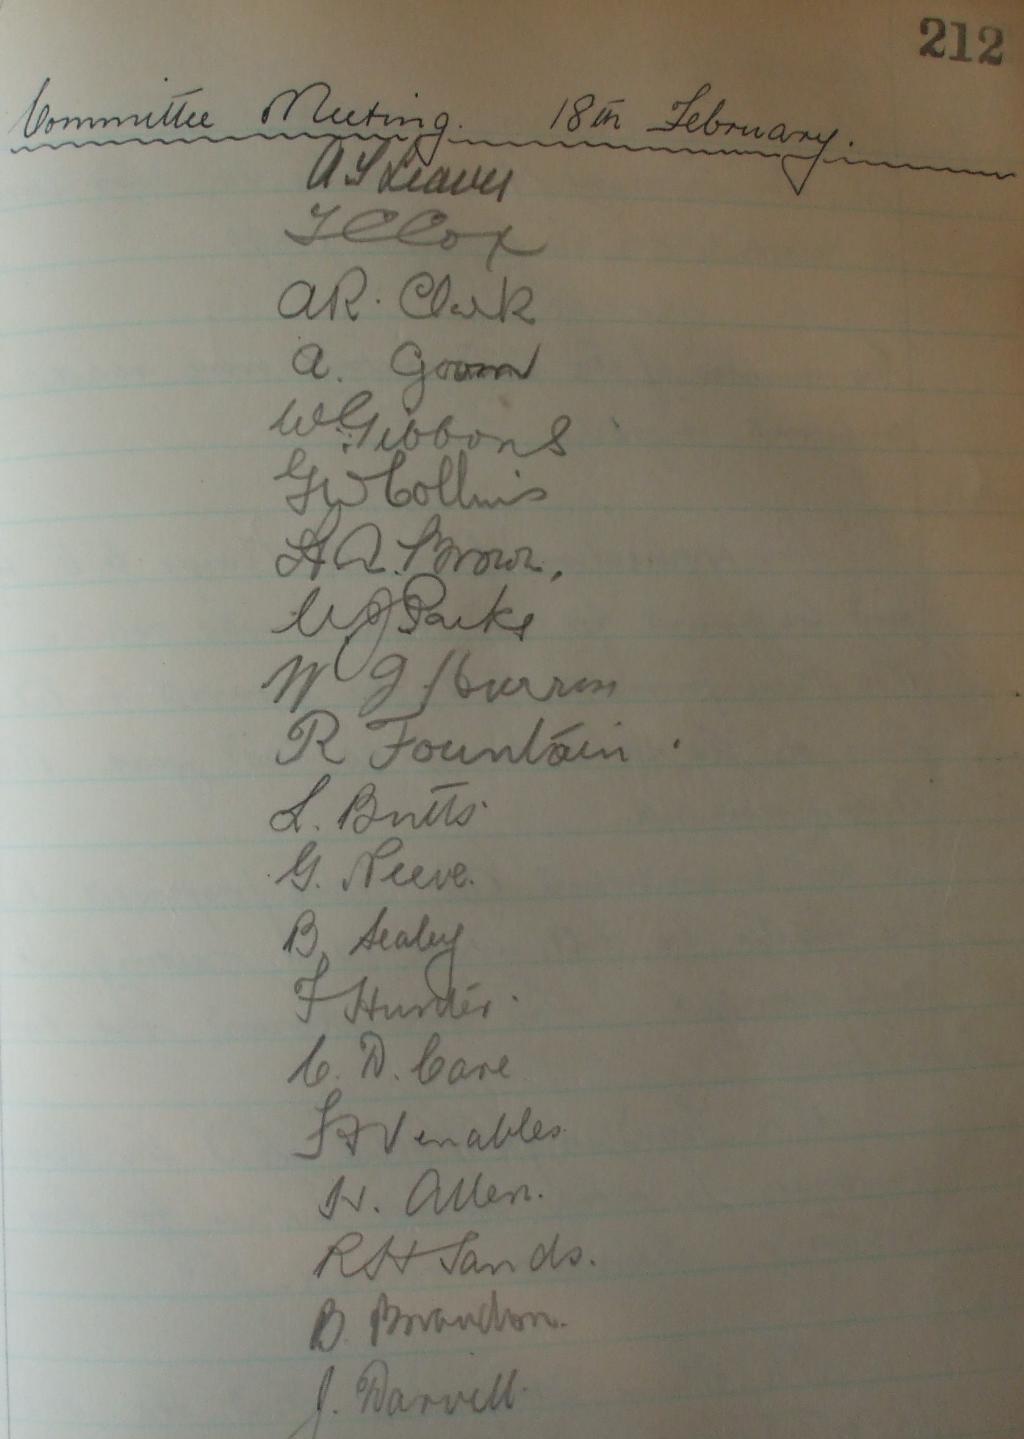 212
Committee Meeting. 18th February.
A S Leaver
T C Cox
AR. Clark
A.
W Gibbons
GW Collins
H A. Brown,
W J Parke
W G
R Fountain
L. Butts
G. Neeve.
B Sealey
F Hunter.
C. D. Care
Venables
H. Allen.
RH Sands.
B. Brandon.
J. Darvell.